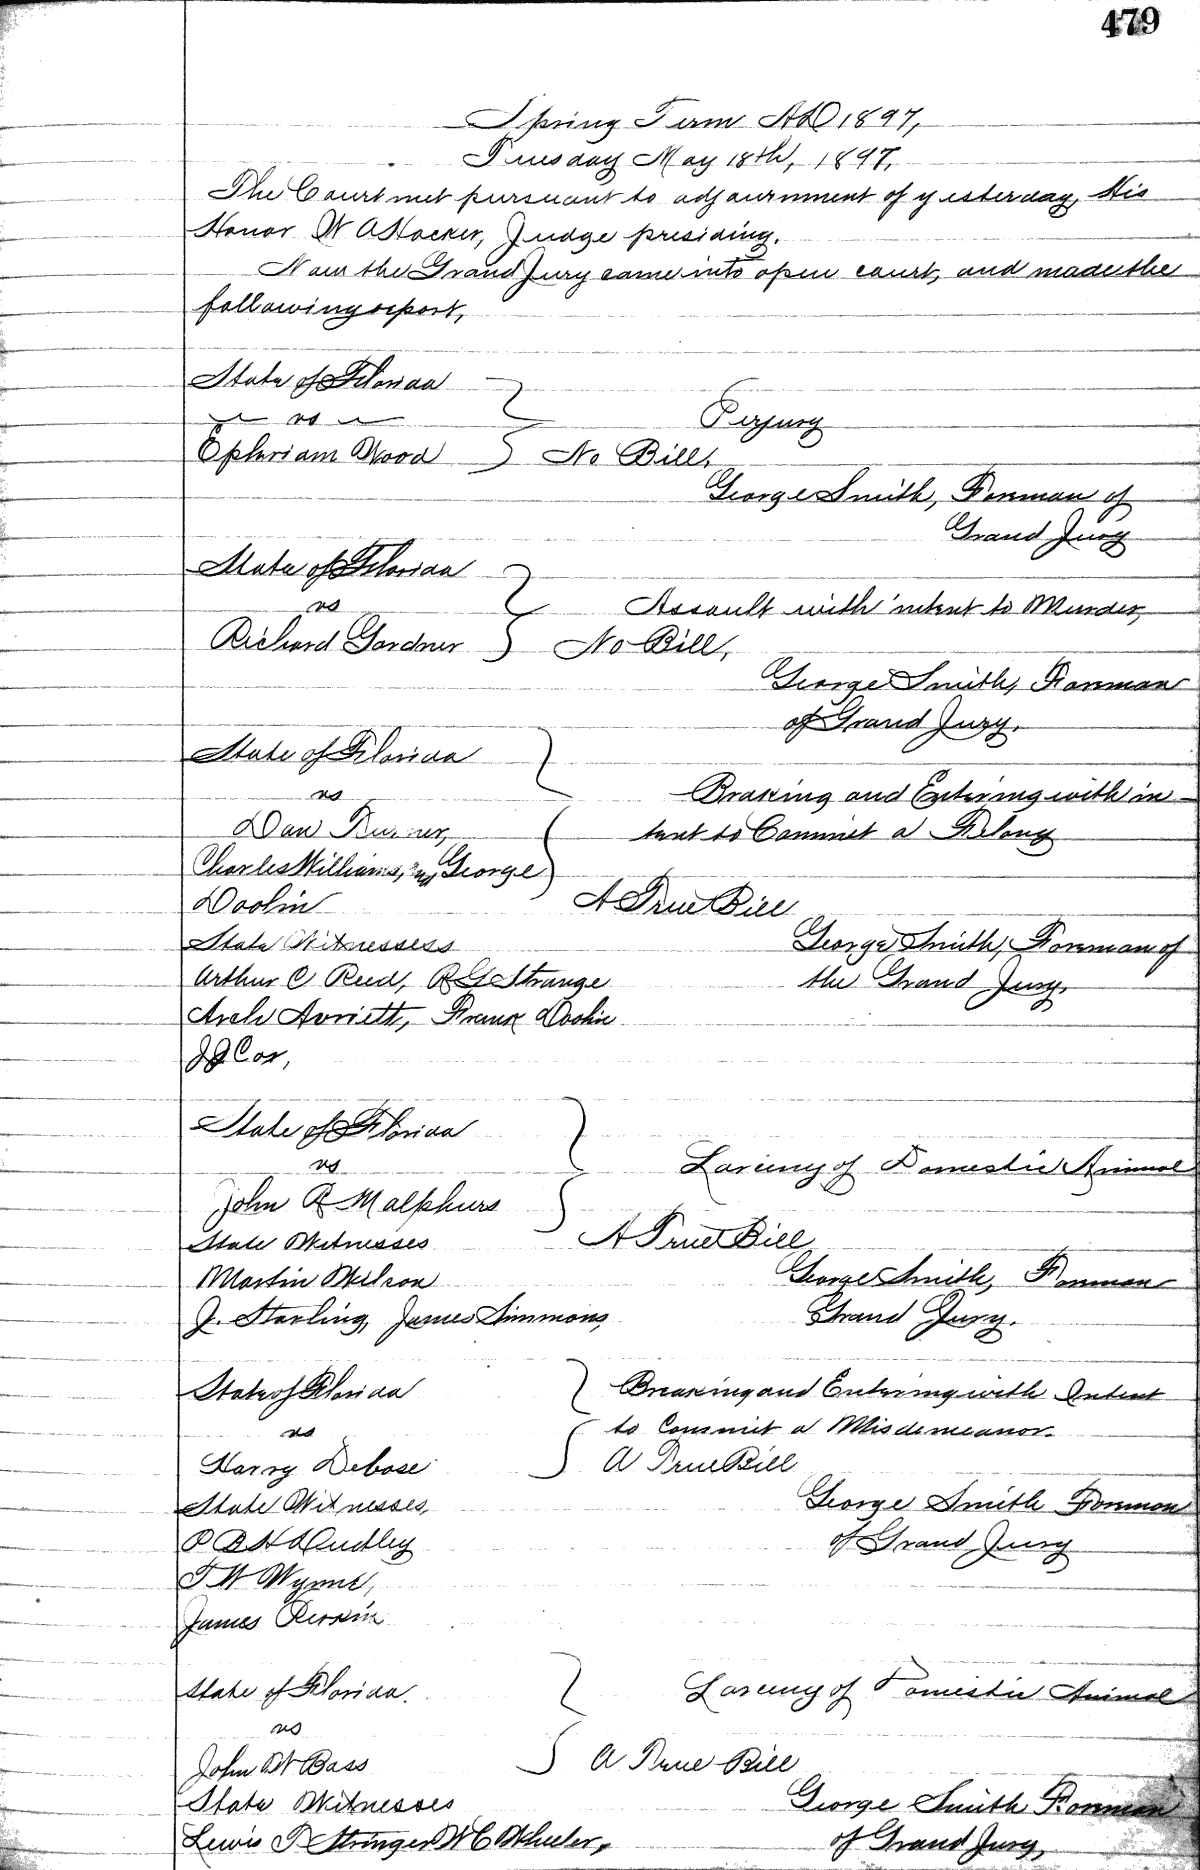 479
Spring Term AD 1897,
Tuesday May 18th, 1897,
The Court met pursuant to adjournment of yesterday, His
Honor W A Hocker, Judge presiding.
Now the Grand Jury came into open court, and made the
following report,
State of Florida
vs Perjury
Ephriam Wood No Bill,
George Smith, Forman of
Grand Jury
State of Florida
vs Assault with intent to Murder,
Richard Gardner No Bill,
George Smith, Forman
of Grand Jury.
State of Florida
vs Braking and Entering with in
Dan Turner, tent to Commit a Felony
Charles Williams, and George
Doolin A True Bill
State Witnessess George Smith, Forman of
Arthur C Reed, R G Strange the Grand Jury,
Arch Avriett, Frank Doolin
J J Cox,
State of Florida
vs Larceny of Domestic Animal
John R Malphurs
State Witnesses A True Bill
Martin Wilson George Smith, Forman
J. Starling, James Simmons, Grand Jury.
State of Florida Breaking and Entering with Intent
vs to Commit a Misdemeanor.
Harry Debose A True Bill
State Witnesses, George Smith Forman
P B H Dudley of Grand Jury
T W Wynne,
James
State of Florida. Larceny of Domestic Animal
vs
John W Bass A True Bill
State Witnesses George Smith Forman
Lewis T Stringer W C Wheeler, of Grand Jury,